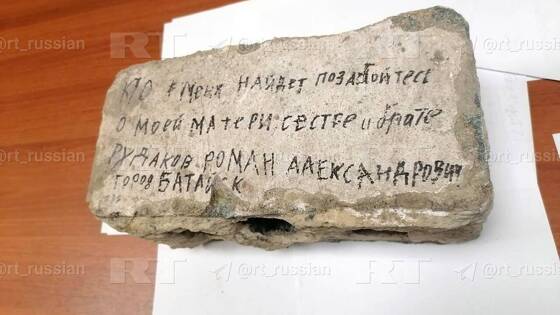 @rt_russian RT @rt_russian RT
КТО МЕНЯ НАЙДЕТ ПОЗАБОЙТЕСЬ
О МОЕЙ МАТЕРИ, СЕСТРЕ и брате
РУДАКОВ РОМАН АЛЕКСАНДРОВИЧ
город БАТАЙСК
@rt_russian RT @rt_russian RT